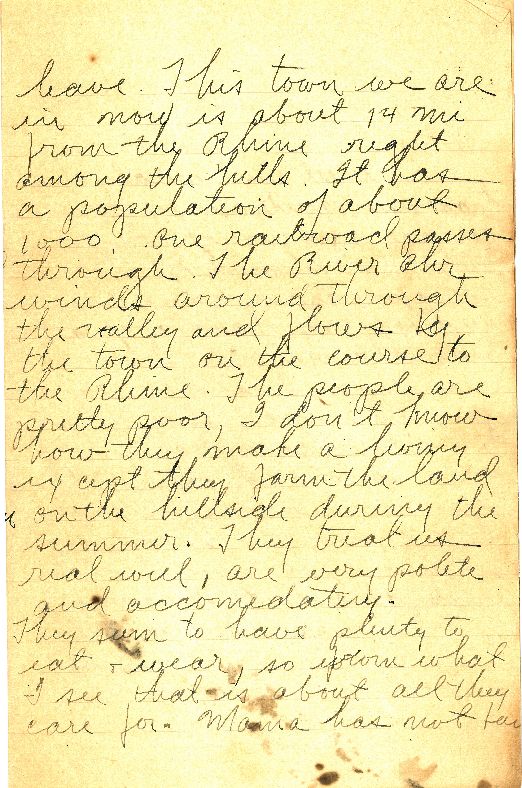 leave. This town we are
in now is about 14 mi
from the Rhine right
among the hills. It has
a population of about
1,000. One railroad passes
through. The River Ahr
winds around through
the valley and flows by
the town on the course to
the Rhine. The people are
pretty poor, I don't know
how they make a living
except they farm the land
on the hillside during the
summer. They treat us
real well, are very polite
and accomedating.
They seem to have plenty to
eat + wear, so from what
I see that is about all they
care for. Mama has not